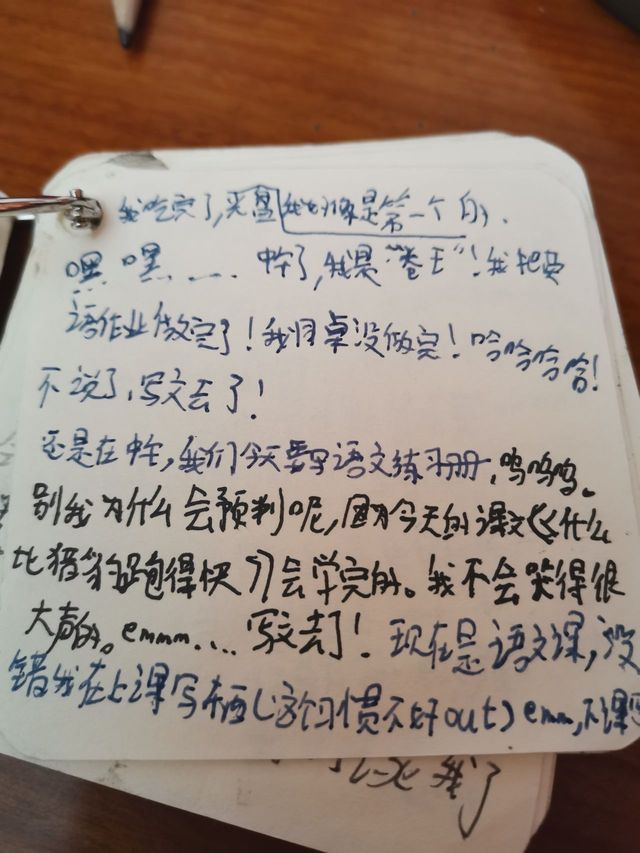 我吃完了,光盘我好像是第一个的.
嘿嘿……中午了,我是"卷王"!我把英
语作业做完了!我同桌没做完!哈哈哈哈!
不说了,写文去了!
还是在中午,我们今天要写语文练习册,呜呜呜。
别我为什么会预判呢,因为今天的课文《什么
比猎豹跑得快》会学完的。我不会哭得很
大声的。emmm....写文去了!现在是语文课,没
错我在上课写东西(这个习惯不好out)emm,下课
我了